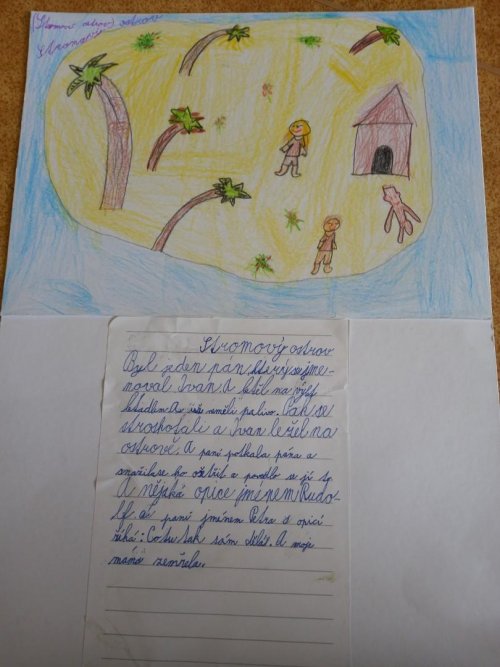 (Stromový ostrov) ostrov
Stromový
Stromový ostrov
Byl jeden pán, který se jme-
noval Ivan. A letěl na výlet
letadlem. A neměli palivo. Pak se
stroskotali a Ivan ležel na
ostrově. A paní potkala pána a
snažila se ho ošetřit a povedlo se jí to.
A nějaká opice jménem Rudo-
lf a paní jménem Petra a opici
říká: Co tu tak sám děláš. A moje
máma zemřela.